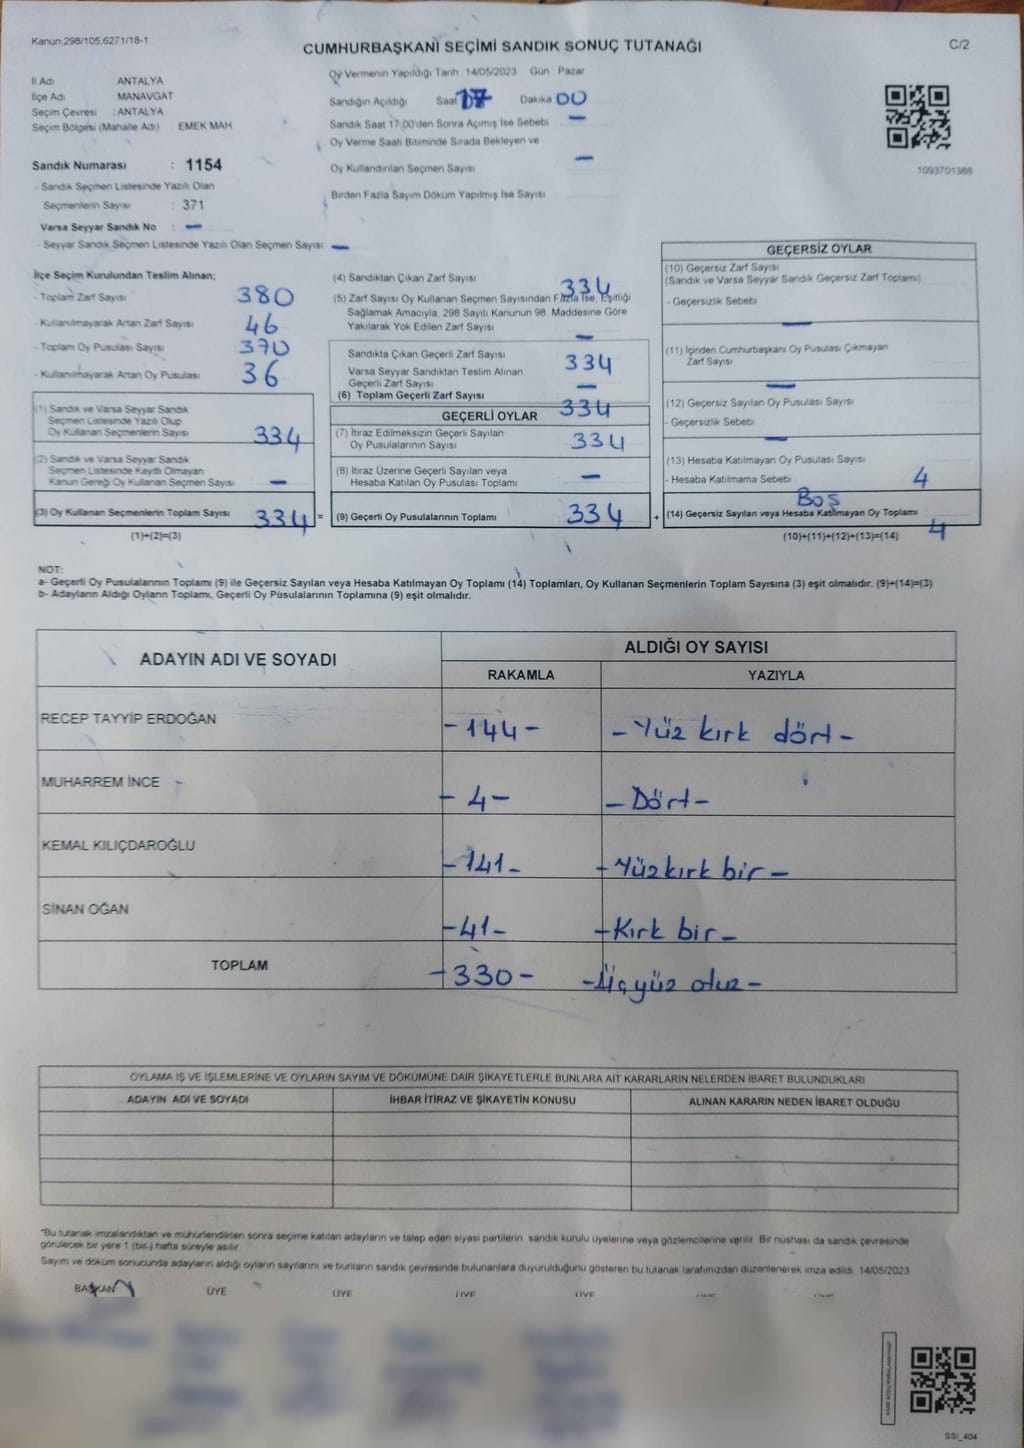 Kanun:298/105,6271/18-1
CUMHURBAŞKANI SEÇİMİ SANDIK SONUÇ TUTANAĞI
C/2
İl Adı ANTALYA
İlçe Adı MANAVGAT
Seçim Çevresi : ANTALYA
Seçim Bölgesi (Mahalle Adı) EMEK MAH
Sandık Numarası : 1154
- Sandık Seçmen Listesinde Yazılı Olan
Seçmenlerin Sayısı : 371
Varsa Seyyar Sandık No : —
- Seyyar Sandık Seçmen Listesinde Yazılı Olan Seçmen Sayısı: —
Oy Vermenin Yapıldığı Tarih 14/05/2023 Gün Pazar
Sandığın Açıldığı Saat 17 Dakika 00
Sandık Saat 17:00'den Sonra Açımış İse Sebebi —
Oy Verme Saati Bitiminde Sırada Bekleyen ve
Oy Kullandırılan Seçmen Sayısı —
Birden Fazla Sayım Döküm Yapılmış İse Sayısı
1093701388
İlçe Seçim Kurulundan Teslim Alınan;
- Toplam Zarf Sayısı 380
- Kullanılmayarak Artan Zarf Sayısı 46
- Toplam Oy Pusulası Sayısı 370
- Kullanılmayarak Artan Oy Pusulası 36
(1) Sandık ve Varsa Seyyar Sandık
Seçmen Listesinde Yazılı Olup
Oy Kullanan Seçmenlerin Sayısı 334
(2) Sandık ve Varsa Seyyar Sandık
Seçmen Listesinde Kayıtlı Olmayan
Kanun Gereği Oy Kullanan Seçmen Sayısı —
(3) Oy Kullanan Seçmenlerin Toplam Sayısı 334 =
(1)+(2)=(3)
(4) Sandıktan Çıkan Zarf Sayısı 334
(5) Zarf Sayısı Oy Kullanan Seçmen Sayısından Fazla İse, Eşitliği
Sağlamak Amacıyla, 298 Sayılı Kanunun 98. Maddesine Göre
Yakılarak Yok Edilen Zarf Sayısı —
Sandıkta Çıkan Geçerli Zarf Sayısı 334
Varsa Seyyar Sandıktan Teslim Alınan
Geçerli Zarf Sayısı —
(6) Toplam Geçerli Zarf Sayısı 334
GEÇERLİ OYLAR
(7) İtiraz Edilmeksizin Geçerli Sayılan
Oy Pusulalarının Sayısı 334
(8) İtiraz Üzerine Geçerli Sayılan veya
Hesaba Katılan Oy Pusulası Toplamı —
(9) Geçerli Oy Pusulalarının Toplamı 334 +
GEÇERSİZ OYLAR
(10) Geçersiz Zarf Sayısı
(Sandık ve Varsa Seyyar Sandık Geçersiz Zarf Toplamı)
- Geçersizlik Sebebi
—
(11) İçinden Cumhurbaşkanı Oy Pusulası Çıkmayan
Zarf Sayısı
—
(12) Geçersiz Sayılan Oy Pusulası Sayısı
- Geçersizlik Sebebi
—
(13) Hesaba Katılmayan Oy Pusulası Sayısı
- Hesaba Katılmama Sebebi 4
Boş
(14) Geçersiz Sayılan veya Hesaba Katılmayan Oy Toplamı 4
(10)+(11)+(12)+(13)=(14)
NOT:
a- Geçerli Oy Pusulalarının Toplamı (9) ile Geçersiz Sayılan veya Hesaba Katılmayan Oy Toplamı (14) Toplamları, Oy Kullanan Seçmenlerin Toplam Sayısına (3) eşit olmalıdır. (9)+(14)=(3)
b- Adayların Aldığı Oyların Toplamı, Geçerli Oy Pusulalarının Toplamına (9) eşit olmalıdır.
ADAYIN ADI VE SOYADI
ALDIĞI OY SAYISI
RAKAMLA YAZIYLA
RECEP TAYYİP ERDOĞAN -144- -Yüz kırk dört-
MUHARREM İNCE -4- -Dört-
KEMAL KILIÇDAROĞLU -141- -Yüzkırk bir-
SİNAN OĞAN -41- -Kırk bir-
TOPLAM -330- -Üçyüz otuz-
OYLAMA İŞ VE İŞLEMLERİNE VE OYLARIN SAYIM VE DÖKÜMÜNE DAİR ŞİKAYETLERLE BUNLARA AİT KARARLARIN NELERDEN İBARET BULUNDUKLARI
ADAYIN ADI VE SOYADI İHBAR İTİRAZ VE ŞİKAYETİN KONUSU ALINAN KARARIN NEDEN İBARET OLDUĞU
"Bu tutanak imzalandıktan ve mühürlendikten sonra seçime katılan adayların ve talep eden siyasi partilerin sandık kurulu üyelerine veya gözlemcilerine verilir. Bir nüshası da sandık çevresinde
görülecek bir yere 1 (bir) hafta süreyle asılır
Sayım ve döküm sonucunda adayların aldığı oyların sayılarını ve bunların sandık çevresinde bulunanlara duyurulduğunu gösteren bu tutanak tarafımızdan düzenlenerek imza edildi. 14/05/2023
BAŞKAN ÜYE ÜYE ÜYE ÜYE
SSI_404